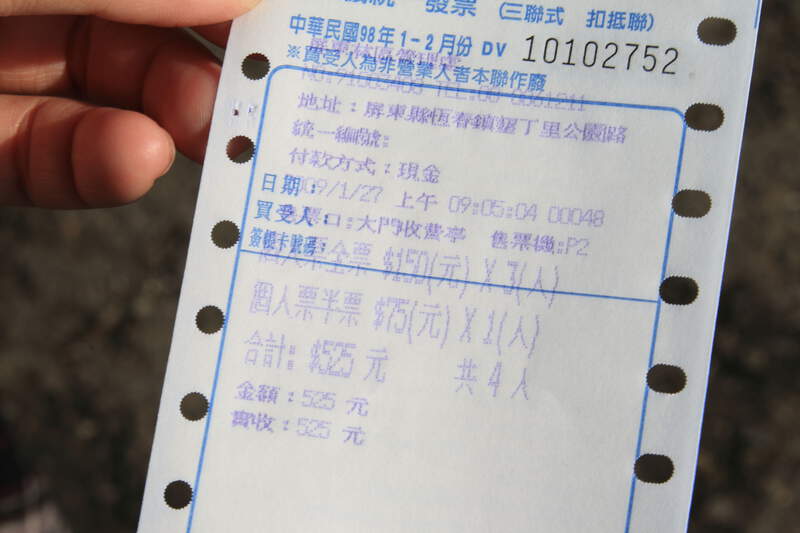 發票 (三聯式 扣抵聯)
中華民國98年1-2月份 DV 10102752
屏東林區管理處
※買受人為非營業人者本聯作廢
地址：屏東縣恆春鎮墾丁里公園路
統一編號:
付款方式：現金
日期：2009/1/27 上午 09:05:04 00048
買受人：
售票口:大門收費亭 售票機:P2
簽帳卡號碼：
個人票全票 $150(元) X 3(人)
個人票半票 $75(元) X 1(人)
合計: $525 元 共 4 人
金額：525 元
實收：525 元